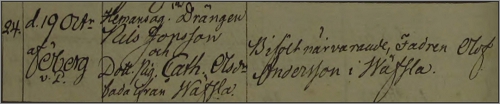 24.
d. 19 Octr
af Öberg
v. P.
Hemansag. Drängen
Nils Jonsson
och
Dott. Pig. Cath. Olsdr
bada från Wäffla.
Bifolet närvarande, Fadren Olof
Andersson i Wäffla.